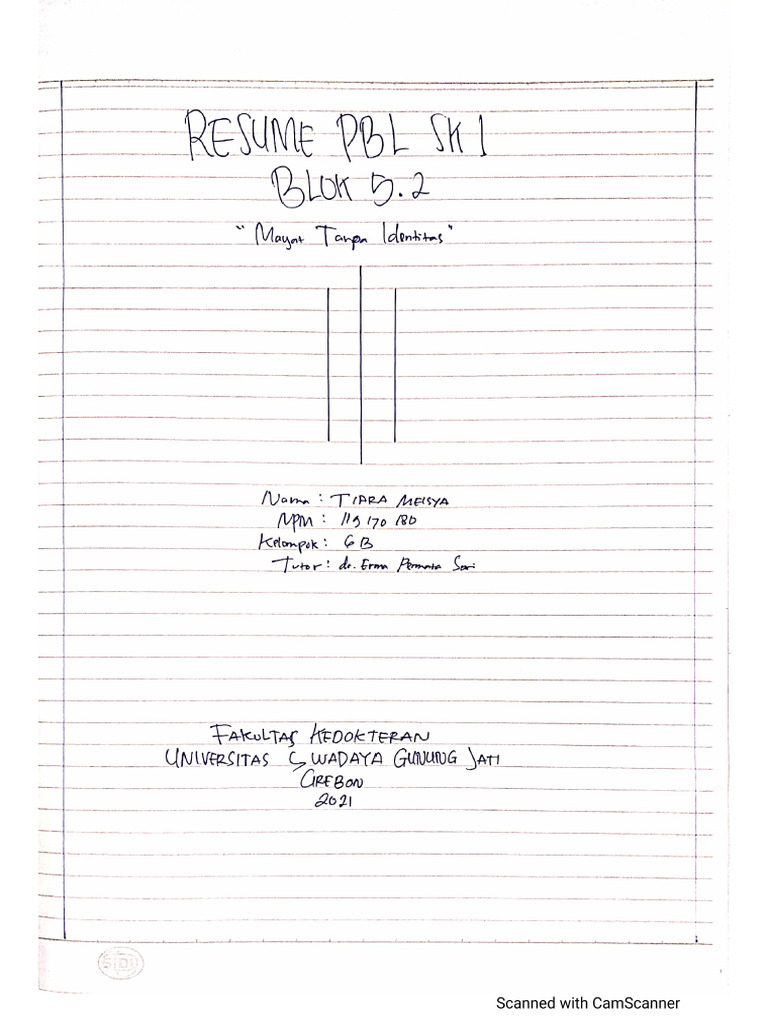 RESUME PBL SK 1
BLOK 5.2
"Mayat Tanpa Identitas"
Nama : TIARA MEISYA
NPM : 119170180
Kelompok : 6B
Tutor : dr. Erma Permata Sari
FAKULTAS KEDOKTERAN
UNIVERSITAS SWADAYA GUNUNG JATI
CIREBON
2021
SIDU
Scanned with CamScanner